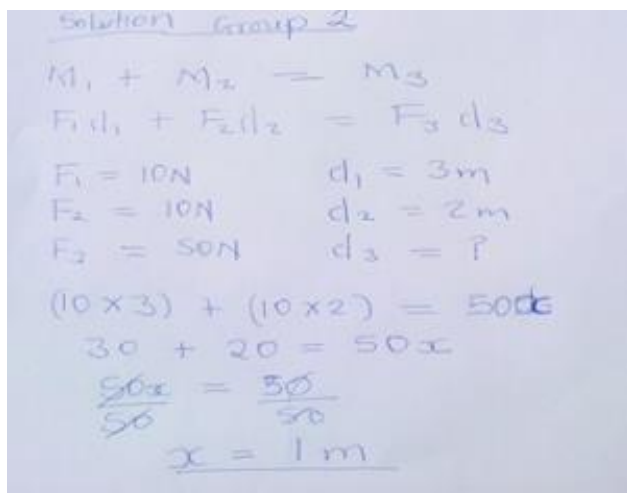 Solution Group 2
M₁ + M₂ = M₃
F₁d₁ + F₂d₂ = F₃ d₃
F₁ = 10N d₁ = 3m
F₂ = 10N d₂ = 2m
F₃ = 50N d₃ = ?
(10 x 3) + (10 x 2) = 50x
30 + 20 = 50x
50x/50 = 50/50
x = 1m